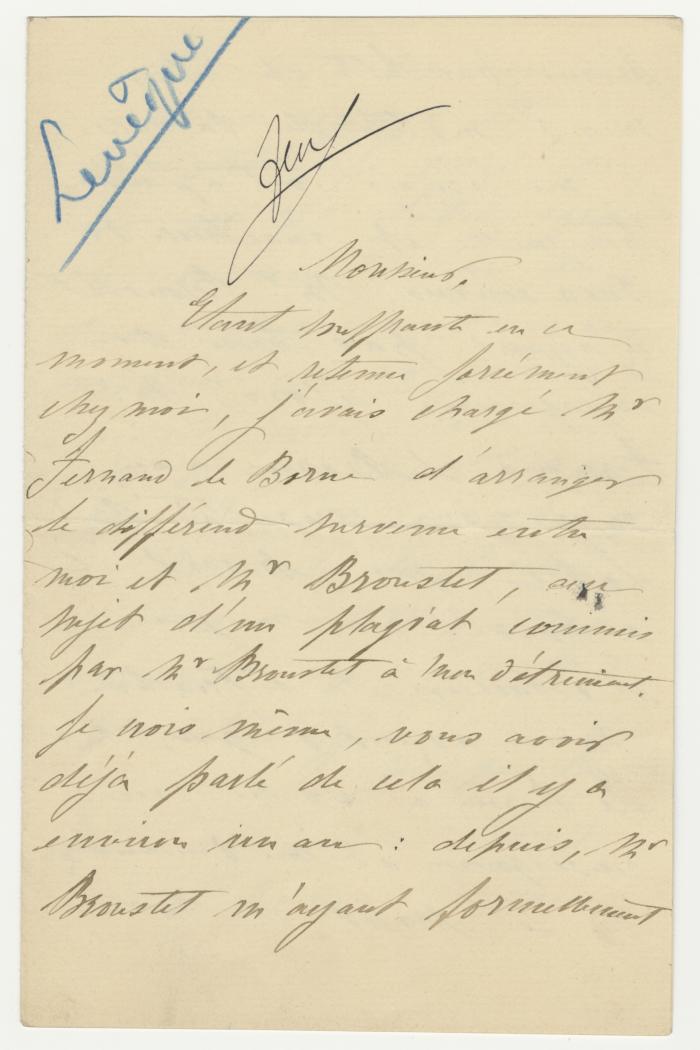 Levêque
Monsieur,
Etant souffrante en ce
moment, et retenue forcément
chez moi, j'avais chargé Mr
Fernand le Borne d'arranger
le différend survenu entre
moi et Mr Broustet, au
sujet d'un plagiat commis
par Mr Broustet à mon détriment.
Je crois même, vous avoir
déjà parlé de cela il y a
environ un an : depuis, Mr
Broustet m'ayant formellement